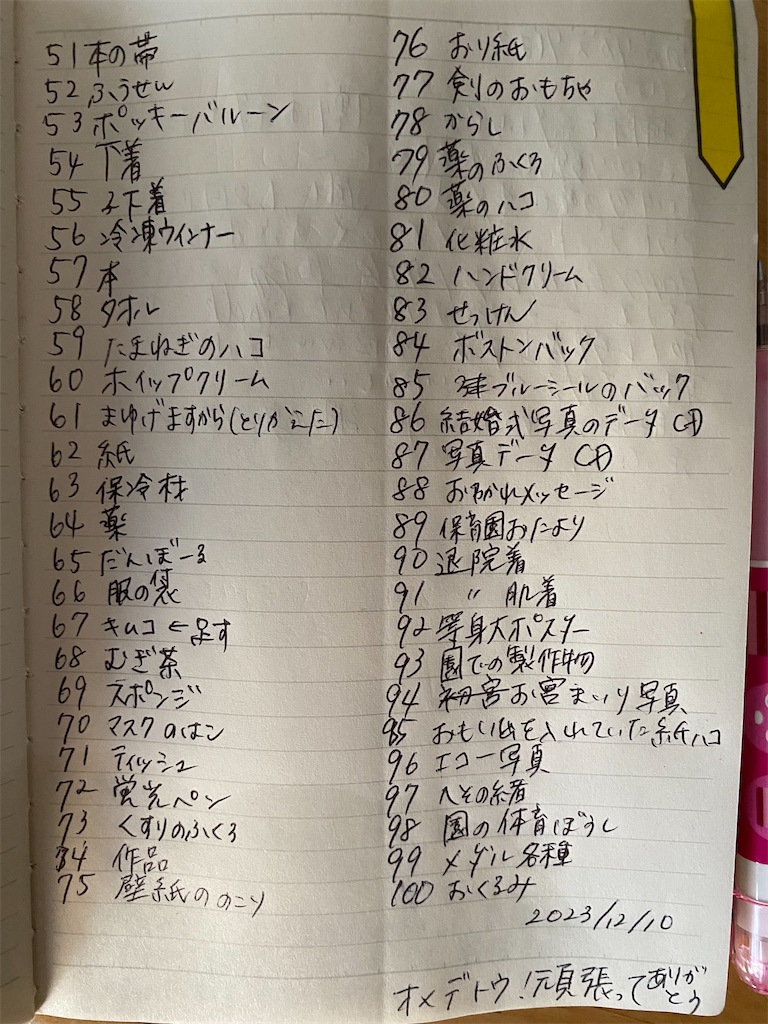 51 本の帯
52 ふうせん
53 ポッキーバルーン
54 下着
55 子下着
56 冷凍ウインナー
57 本
58 タオル
59 たまねぎのハコ
60 ホイップクリーム
61 まゆげますから(とりかえた)
62 紙
63 保冷材
64 薬
65 だんぼーる
66 服の袋
67 キムコ←
68 むぎ茶
69 スポンジ
70 マスクのはこ
71 ティッシュ
72 蛍光ペン
73 くすりのふくろ
74 作品
75 壁紙ののこり
76 おり紙
77 剣のおもちゃ
78 からし
79 薬のふくろ
80 薬のハコ
81 化粧水
82 ハンドクリーム
83 せっけん
84 ボストンバック
85 ブルーシールのバック
86 結婚式写真のデータ CD
87 写真データ CD
88 おわかれメッセージ
89 保育園おたより
90 退院着
91 〃 肌着
92 等身大ポスター
93 園での製作物
94 お宮まいり写真
95 おもい出を入れていた紙ハコ
96 エコー写真
97 へその緒
98 園の体育ぼうし
99 メダル各種
100 おくるみ
2023/12/10
オメデトウ!頑張ってありがとう